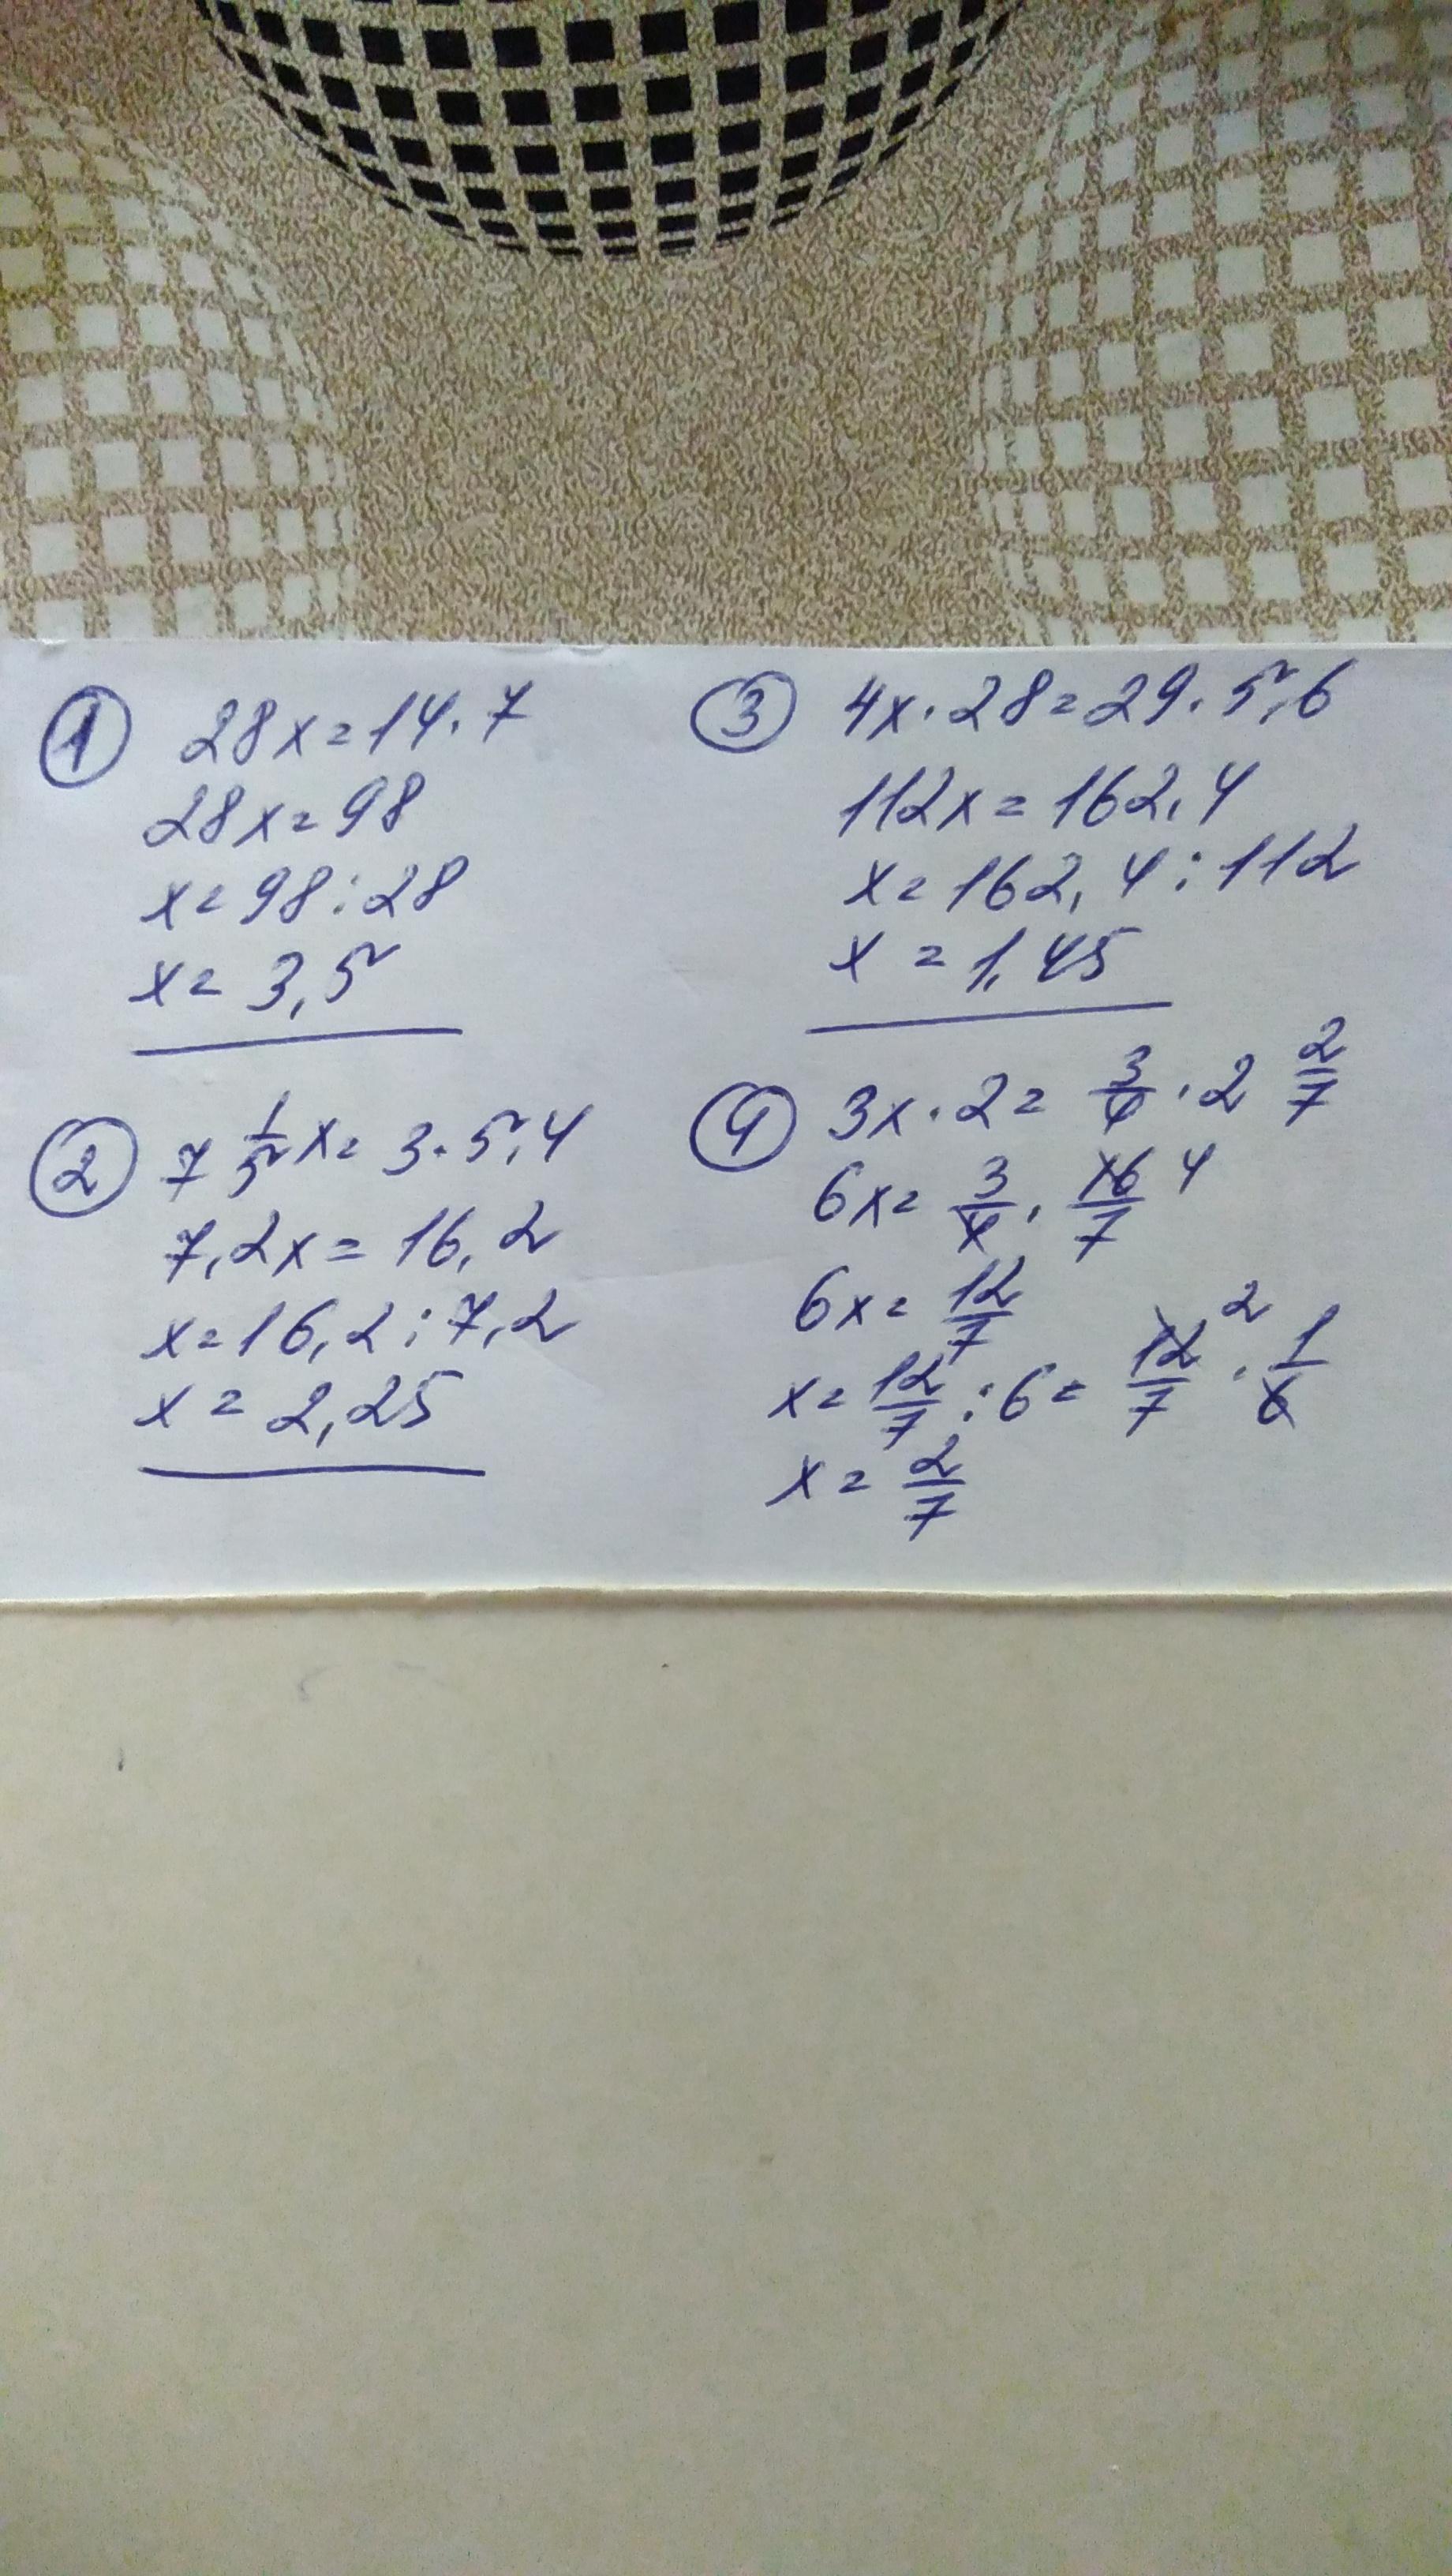 ① 28x=14·7
28x=98
x=98:28
x=3,5
② 7 1/5 x=3·5,4
7,2x=16,2
x=16,2:7,2
x=2,25
③ 4x·28=29·5,6
112x=162,4
x=162,4:112
x=1,45
④ 3x·2=3/4·2 2/7
6x=3/4·16/7 4
6x=12/7
x=12/7:6=12/7 2·1/6
x=2/7